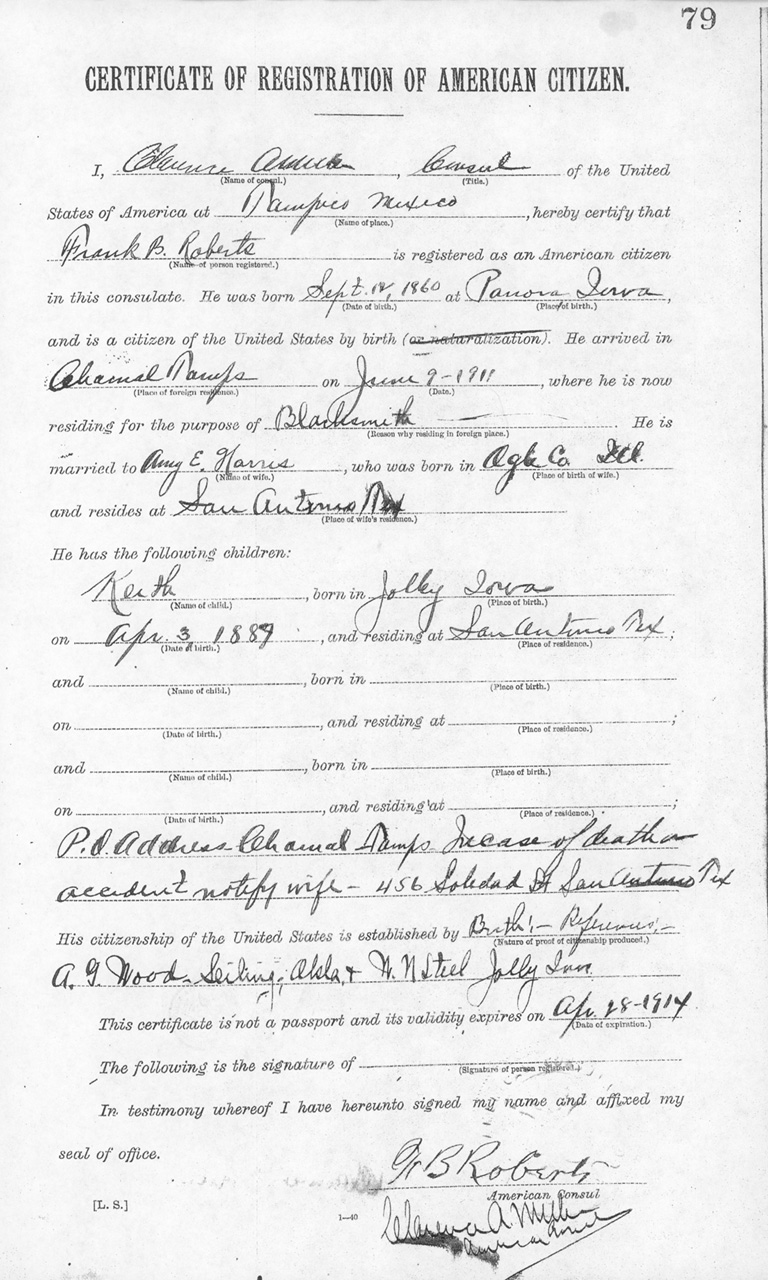 79
CERTIFICATE OF REGISTRATION OF AMERICAN CITIZEN.
I, Clarence , Consul of the United
(Name of consul.) (Title.)
States of America at Tampico Mexico , hereby certify that
(Name of place.)
Frank B. Roberts is registered as an American citizen
(Name of person registered.)
in this consulate. He was born Sept. 18, 1860 at Panora Iowa ,
(Date of birth.) (Place of birth.)
and is a citizen of the United States by birth (or naturalization). He arrived in
Chamal Tamps on June 9-1911 , where he is now
(Place of foreign residence.) (Date.)
residing for the purpose of Blacksmith . He is
(Reason why residing in foreign place.)
married to Amy E. Harris , who was born in Ogle Co. Ill.
(Name of wife.) (Place of birth of wife.)
and resides at San Antonio Tex
(Place of wife's residence.)
He has the following children:
Keith , born in Jolley Iowa
(Name of child.) (Place of birth.)
on Apr. 3, 1889 , and residing at San Antonio Tex ;
(Date of birth.) (Place of residence.)
and , born in
(Name of child.) (Place of birth.)
on , and residing at ;
(Date of birth.) (Place of residence.)
and , born in
(Name of child.) (Place of birth.)
on , and residing at ;
(Date of birth.) (Place of residence.)
P.O. Address Chamal Tamps In case of death or
accident notify wife - 456 Soledad St San Antonio Tex
His citizenship of the United States is established by Birth - References -
(Nature of proof of citizenship produced.)
A. G. Wood - Seiling, Okla. + W. N Steel Jolly
This certificate is not a passport and its validity expires on Apr. 28-1914
(Date of expiration.)
The following is the signature of
(Signature of person registered.)
In testimony whereof I have hereunto signed my name and affixed my
seal of office.
F B Roberts
American Consul
[L. S.]
1—40
Clarence A. Miller
American Consul